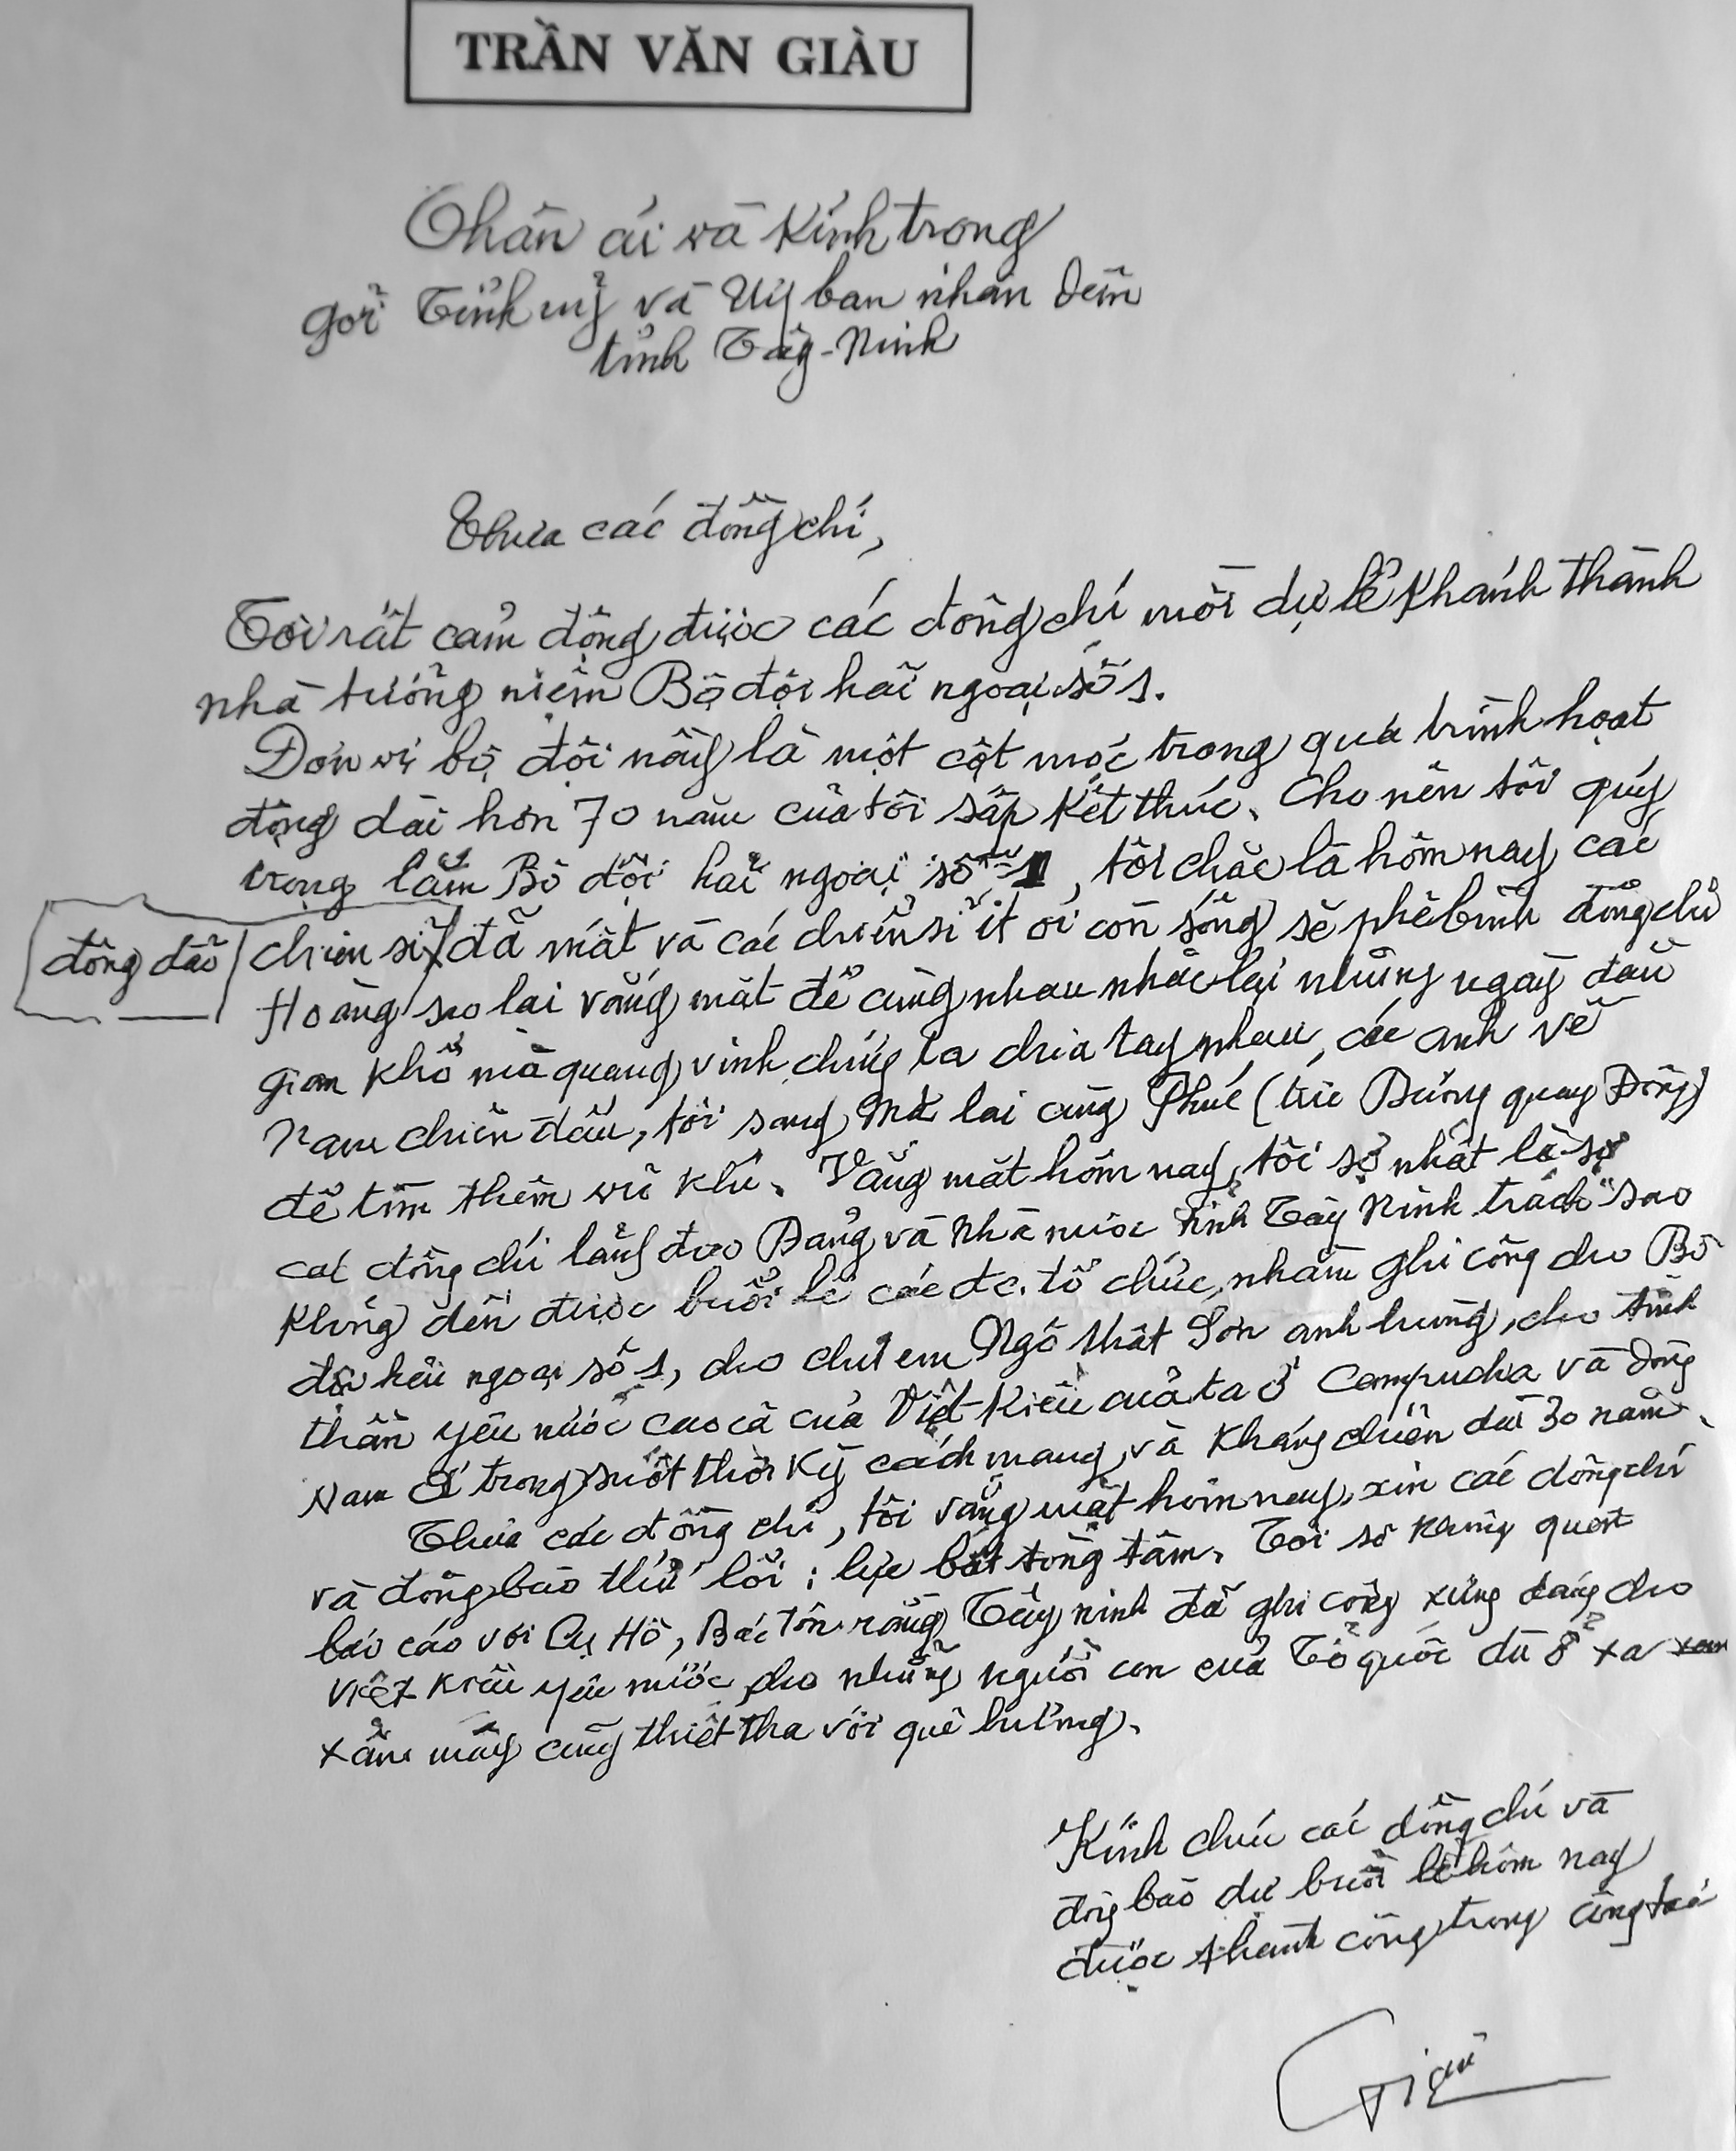 TRẦN VĂN GIÀU
Thân ái và Kính trọng
gởi Tỉnh uỷ và Uỷ ban nhân dân
tỉnh Tây-Ninh
Thưa các đồng chí,
Tôi rất cảm động được các đồng chí mời dự lễ Khánh thành
nhà tưởng niệm Bộ đội hải ngoại số 1.
Đơn vị bộ đội nầy là một cột mốc trong quá trình hoạt
động dài hơn 70 năm của tôi sắp kết thúc. Cho nên tôi quý
trọng lắm Bộ đội hải ngoại số 1, tôi chắc là hôm nay các
đông đảo
chiến sĩ đã mất và các chiến sĩ ít ỏi còn sống sẽ phê bình đồng chí
Hoàng sao lại vắng mặt để cùng nhau nhắc lại những ngày đầu
gian khổ mà quang vinh, chúng ta chia tay nhau, các anh về
Nam chiến đấu, tôi sang Mã lai cùng Phúc (tức Dương quang Đông)
để tìm thêm vũ khí. Vắng mặt hôm nay, tôi sợ nhất là sợ
các đồng chí lãnh đạo Đảng và Nhà nước tỉnh Tây Ninh trách "sao
không đến được buổi lễ các đ.c. tổ chức, nhằm ghi công cho Bộ
đội hải ngoại số 1, cho chú em Ngô thất Sơn anh hùng, cho tinh
thần yêu nước cao cả của Việt Kiều của ta ở Campuchia và Đông
Nam Á trong suốt thời kỳ cách mạng và kháng chiến dài 30 năm.
Thưa các đồng chí, tôi vắng mặt hôm nay, xin các đồng chí
và đồng bào thứ lỗi: lực bất tòng tâm. Tôi sẽ không quên
báo cáo với Cụ Hồ, Bác Tôn rằng Tây ninh đã ghi công xứng đáng cho
Việt kiều yêu nước, cho những người con của Tổ quốc dù ở xa
xăm mấy cũng thiết tha với quê hương.
Kính chúc các đồng chí và
đồng bào dự buổi lễ hôm nay
được thành công trong công tác
Giàu